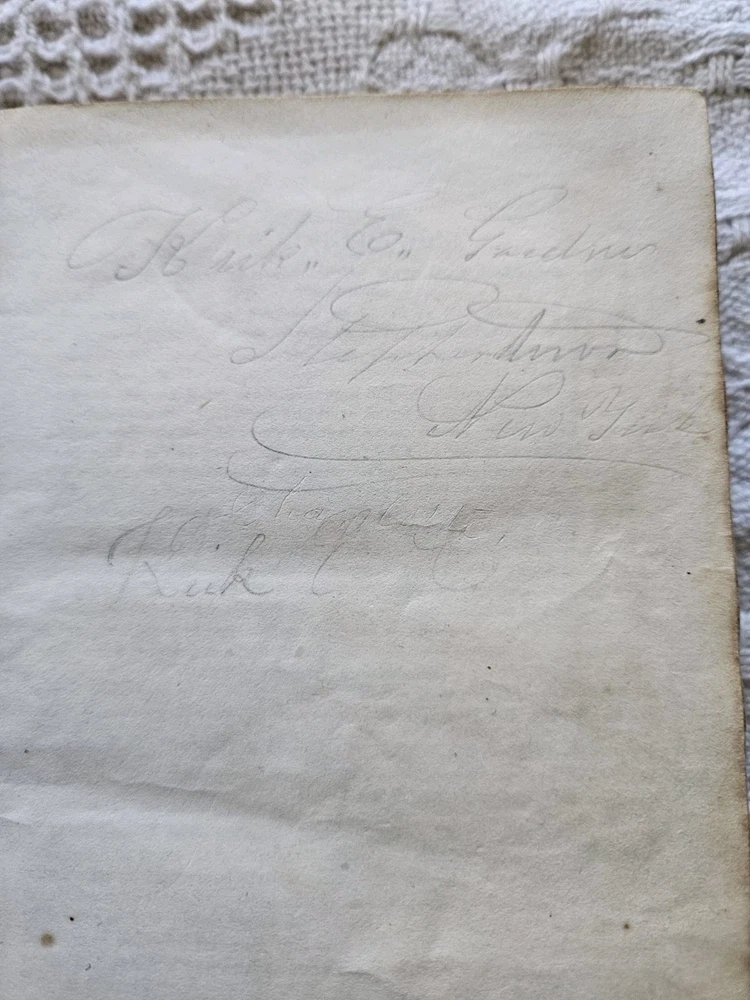 Kirk,, E,, Gardner
Stephentown
New York
Kirk E